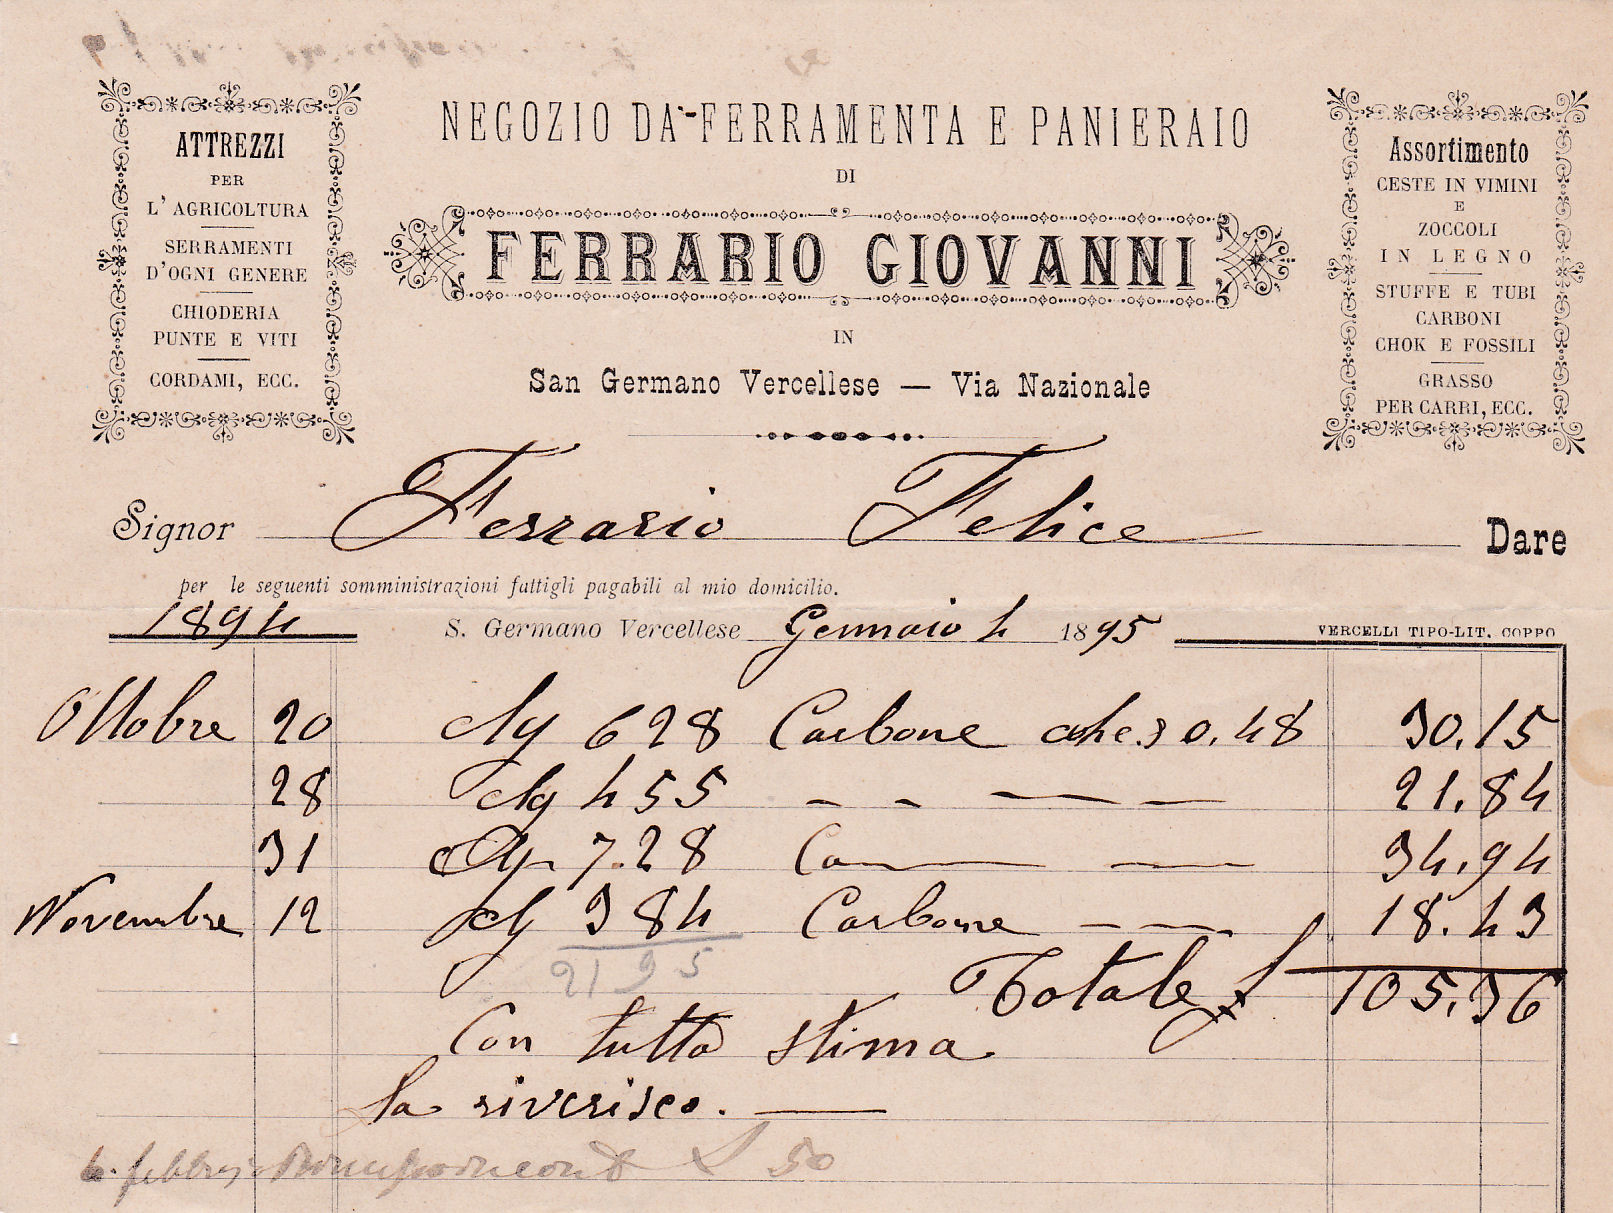 ATTREZZI
PER
L'AGRICOLTURA
SERRAMENTI
D'OGNI GENERE
CHIODERIA
PUNTE E VITI
CORDAMI, ECC.
NEGOZIO DA FERRAMENTA E PANIERAIO
DI
FERRARIO GIOVANNI
IN
San Germano Vercellese — Via Nazionale
Assortimento
CESTE IN VIMINI
E
ZOCCOLI
IN LEGNO
STUFFE E TUBI
CARBONI
CHOK E FOSSILI
GRASSO
PER CARRI, ECC.
Signor Ferrario Felice Dare
per le seguenti somministrazioni fattigli pagabili al mio domicilio.
1894 S. Germano Vercellese Gennaio 4 1895 VERCELLI TIPO-LIT. COPPO
Ottobre 20 Mg 628 Carbone 0.48 30.15
28 Mg 455 – – — — 21.84
31 Mg 7.28 Ca — — 34.94
Novembre 12 Mg 384 Carbone – — 18.43
2195
Totale £ 105.36
Con tutta stima
La riverisco. —
50